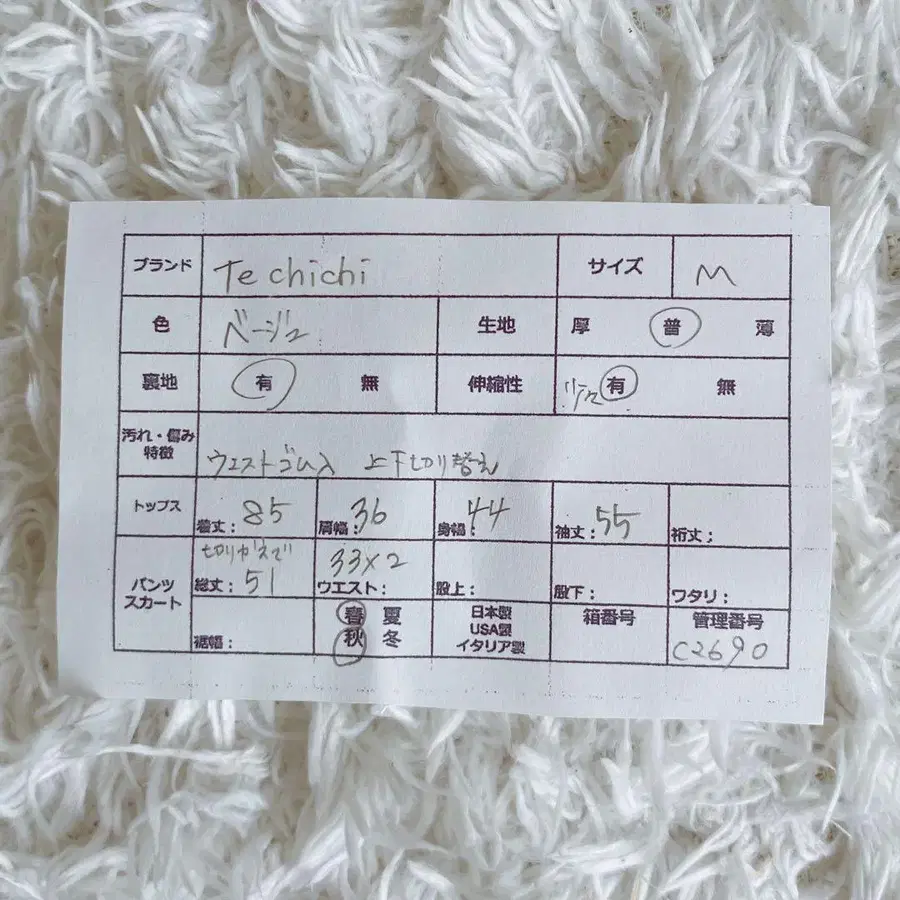 ブランド Te chichi サイズ M
色 ベージュ 生地 厚 普 薄
裏地 有 無 伸縮性 少々 有 無
汚れ・傷み
特徴 ウエストゴム入 上下切り替え
トップス 着丈: 85 肩幅: 36 身幅: 44 袖丈: 55 裄丈:
パンツ
スカート 切りかえで
総丈: 51 ウエスト: 33×2 股上: 股下: ワタリ:
裾幅: 春 夏
秋 冬 日本製
USA製
イタリア製 箱番号 管理番号
C2690